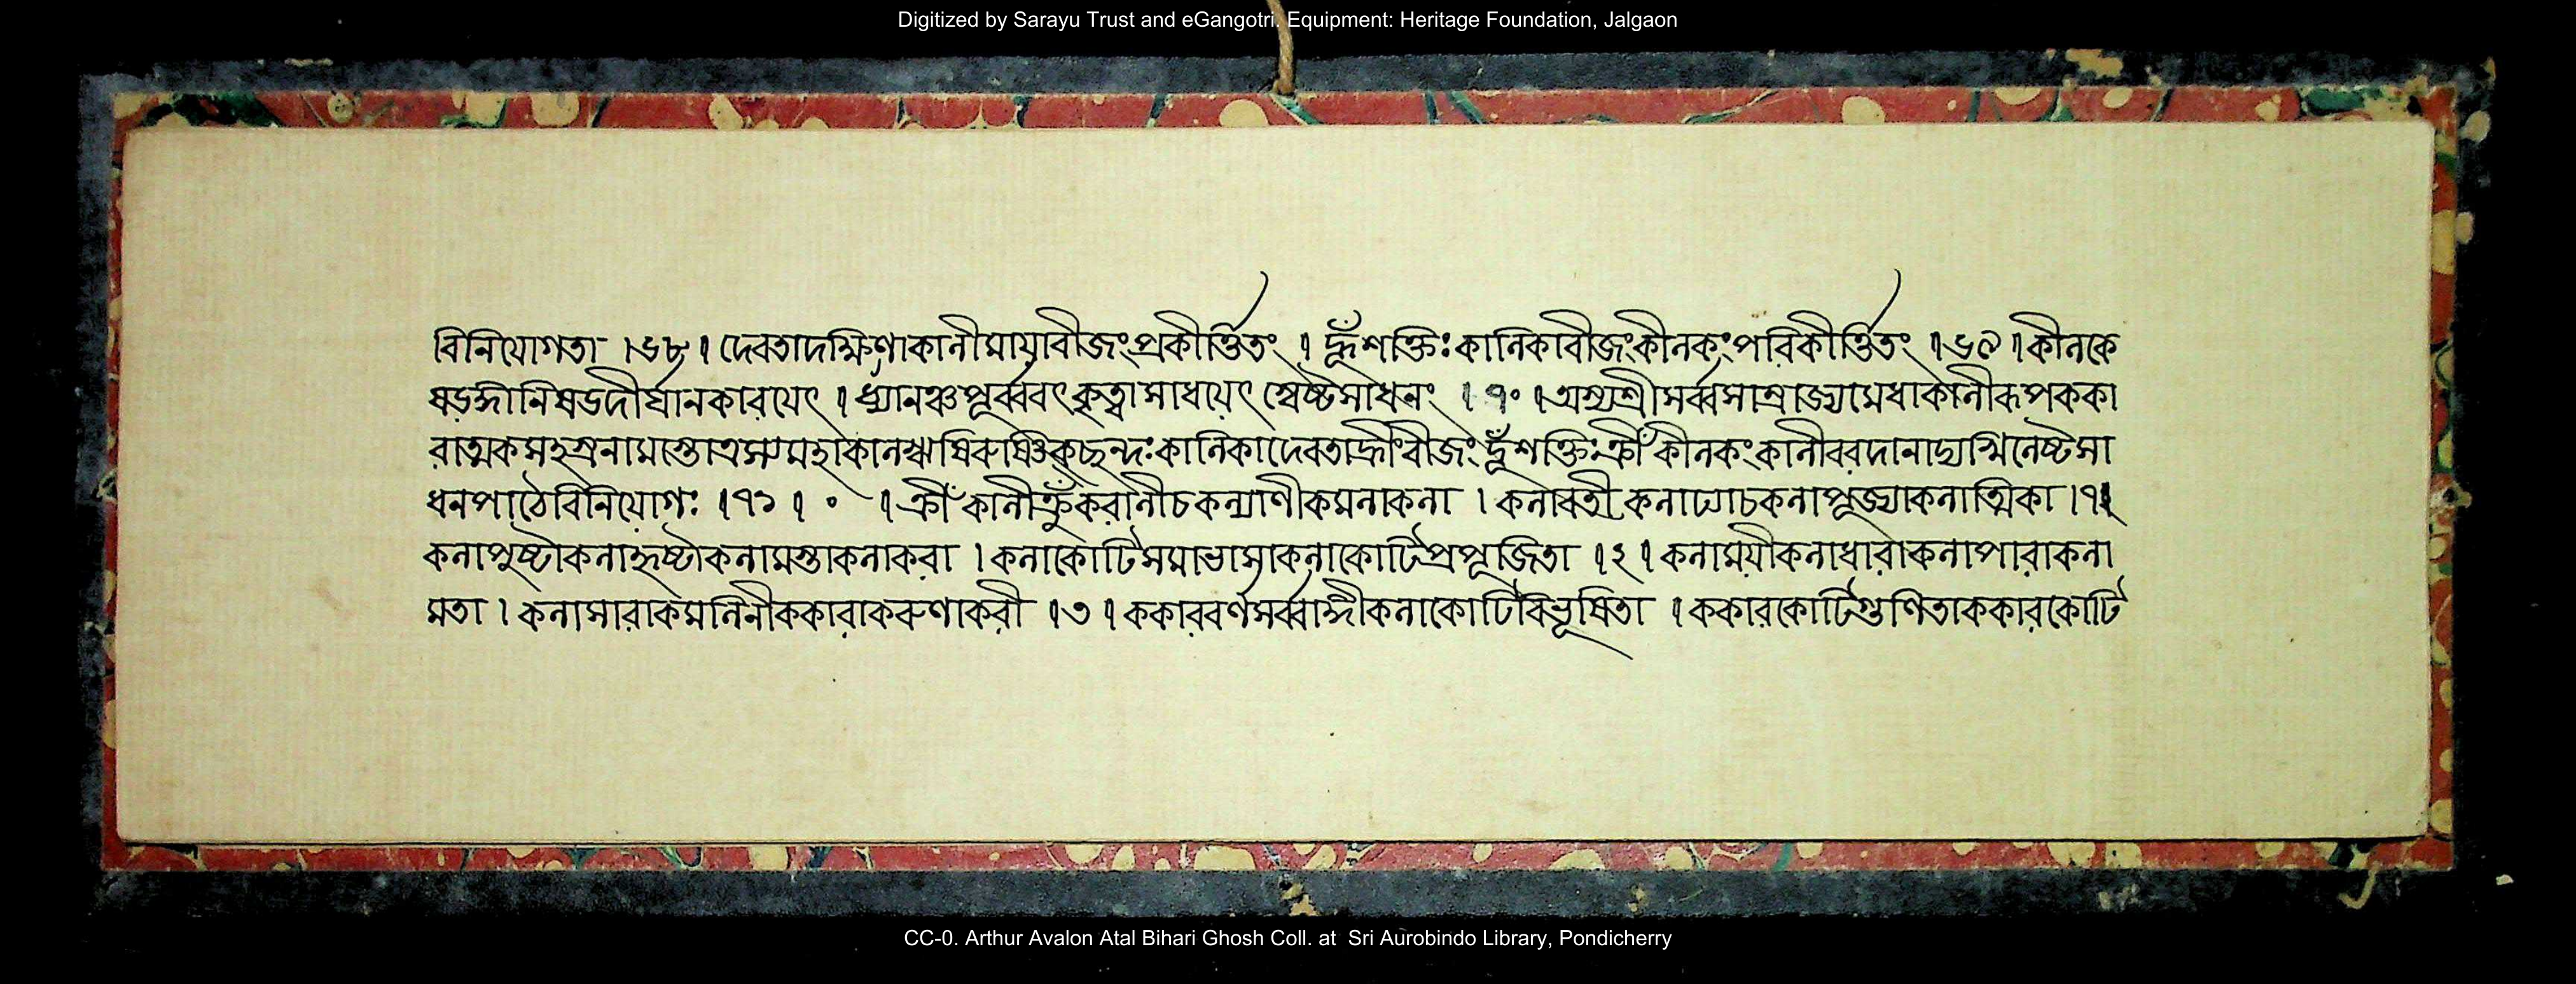 Digitized by Sarayu Trust and eGangotri. Equipment: Heritage Foundation, Jalgaon
বিনিযোগতা ।৬৮। দেবতাদক্ষিণাকালীমায়াবীজংপ্রকীর্ত্তিতং । হূঁশক্তিঃকালিকাবীজংকীলকংপরিকীর্ত্তিতং ।৬৯।কীলকে
ষড়ঙ্গানিষড়দীর্ঘালকারয়েৎ । ধ্যানঞ্চপূর্ব্ববৎকৃত্বাসাধয়েৎস্বেষ্টসাধনং । ৭০ ।অস্যশ্রীসর্ব্বসাম্রাজ্যমেধাকালীরূপককা
রাত্মকসহস্রনামস্তোত্রস্যমহাকালঋষিরুষ্ণিক্ছন্দঃকালিকাদেবতাহ্রীংবীজংহূঁশক্তিঃক্রীঁকীলকংকালীবরদানাদ্যখিলেষ্টসা
ধনপাঠেবিনিযোগঃ ।৭১। ০ ।ক্রীঁকালীক্রূঁকরালীচকল্যাণীকমলাকলা । কলাবতীকলাঢ্যাচকলাপূজ্যাকলাত্মিকা ।৭১
কলাপুষ্টাকলাহৃষ্টাকলামস্তাকলাকরা । কলাকোটিসমাভাসাকলাকোটিপ্রপূজিতা ।২। কলাময়ীকলাধারাকলাপারাকলা
মতা । কলাসারাকমলিনীককারাকরুণাকরী ।৩। ককারবর্ণসর্ব্বাঙ্গীকলাকোটিবিভূষিতা ।ককারকোটিগুণিতাককারকোটি
CC-0. Arthur Avalon Atal Bihari Ghosh Coll. at Sri Aurobindo Library, Pondicherry